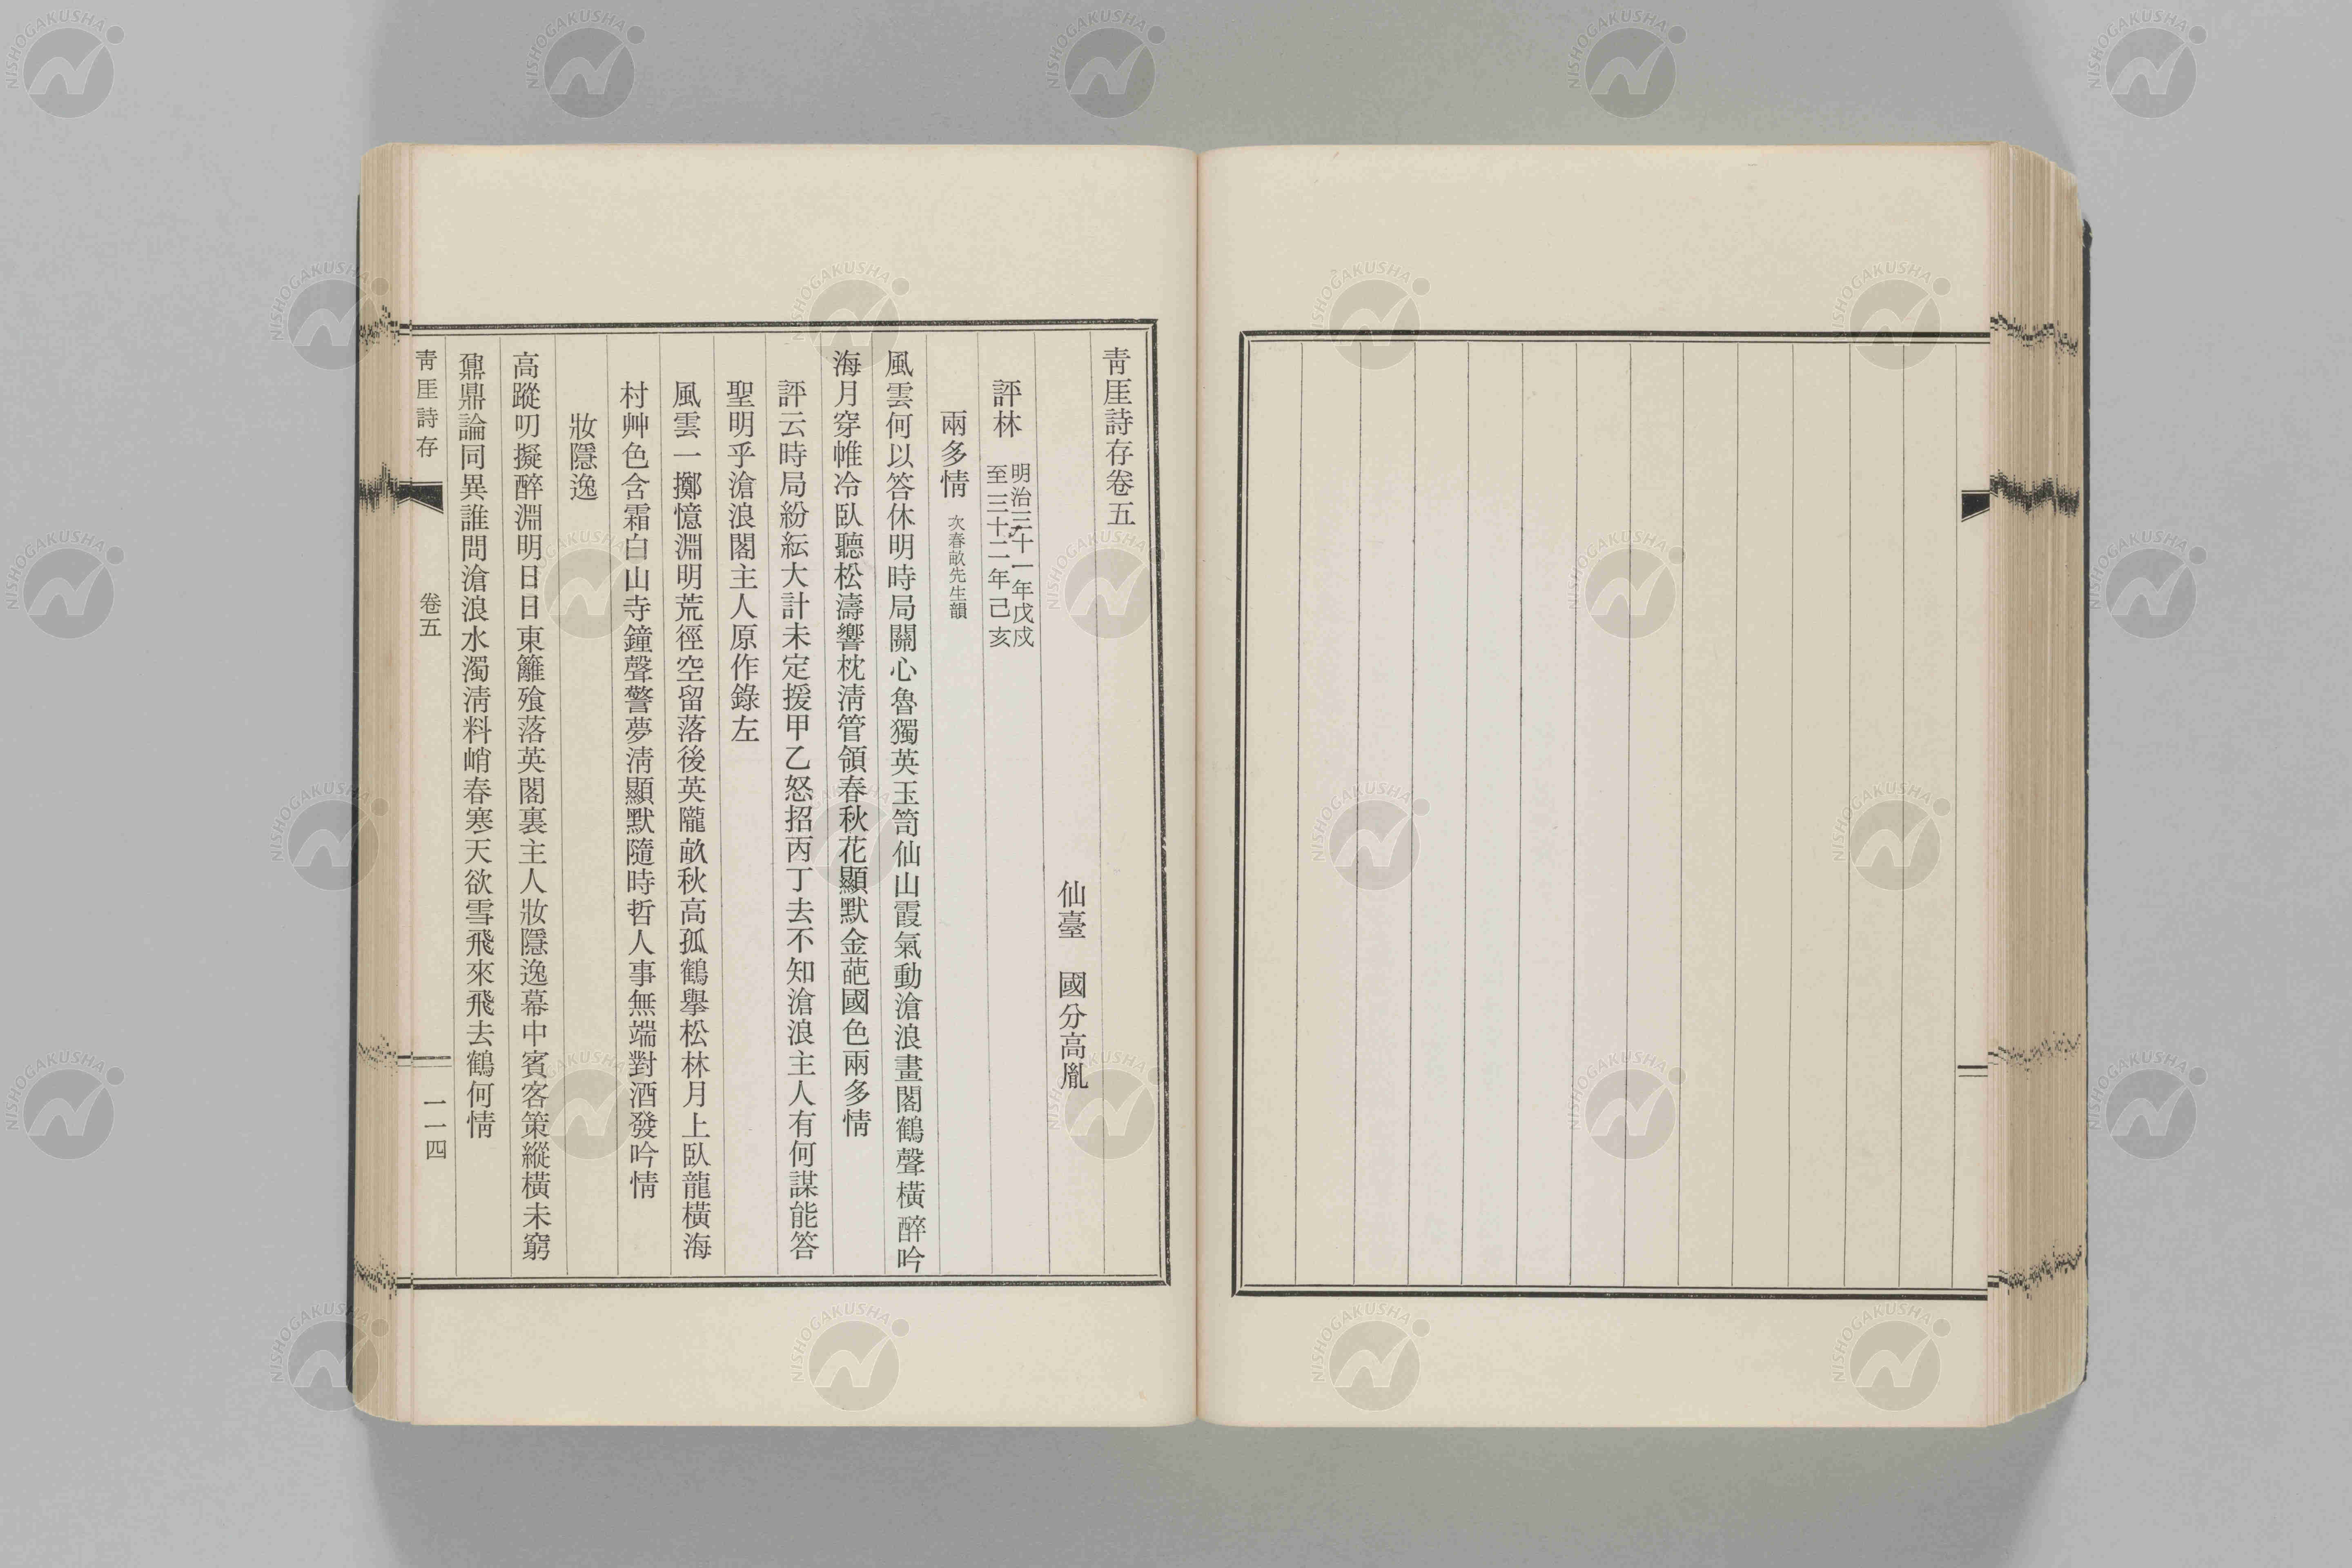 青厓詩存卷五
仙臺　國分高胤
評林　明治三十一年戊戌
至三十二年己亥
兩多情　次春畝先生韻
風雲何以答休明時局關心魯獨英玉笥仙山霞氣動滄浪畫閣鶴聲橫醉吟
海月穿帷冷臥聽松濤響枕淸管領春秋花顯默金葩國色兩多情
評云時局紛紜大計未定援甲乙怒招丙丁去不知滄浪主人有何謀能答
聖明乎滄浪閣主人原作錄左
風雲一擲憶淵明荒徑空留落後英隴畝秋高孤鶴擧松林月上臥龍橫海
村艸色含霜白山寺鐘聲警夢淸顯默隨時哲人事無端對酒發吟情
妝隱逸
高蹤叨擬醉淵明日日東籬飱落英閣裏主人妝隱逸幕中賓客策縱橫未窮
鼐鼎論同異誰問滄浪水濁淸料峭春寒天欲雪飛來飛去鶴何情
靑厓詩存
卷五
一一四
NISHOGAKUSHA